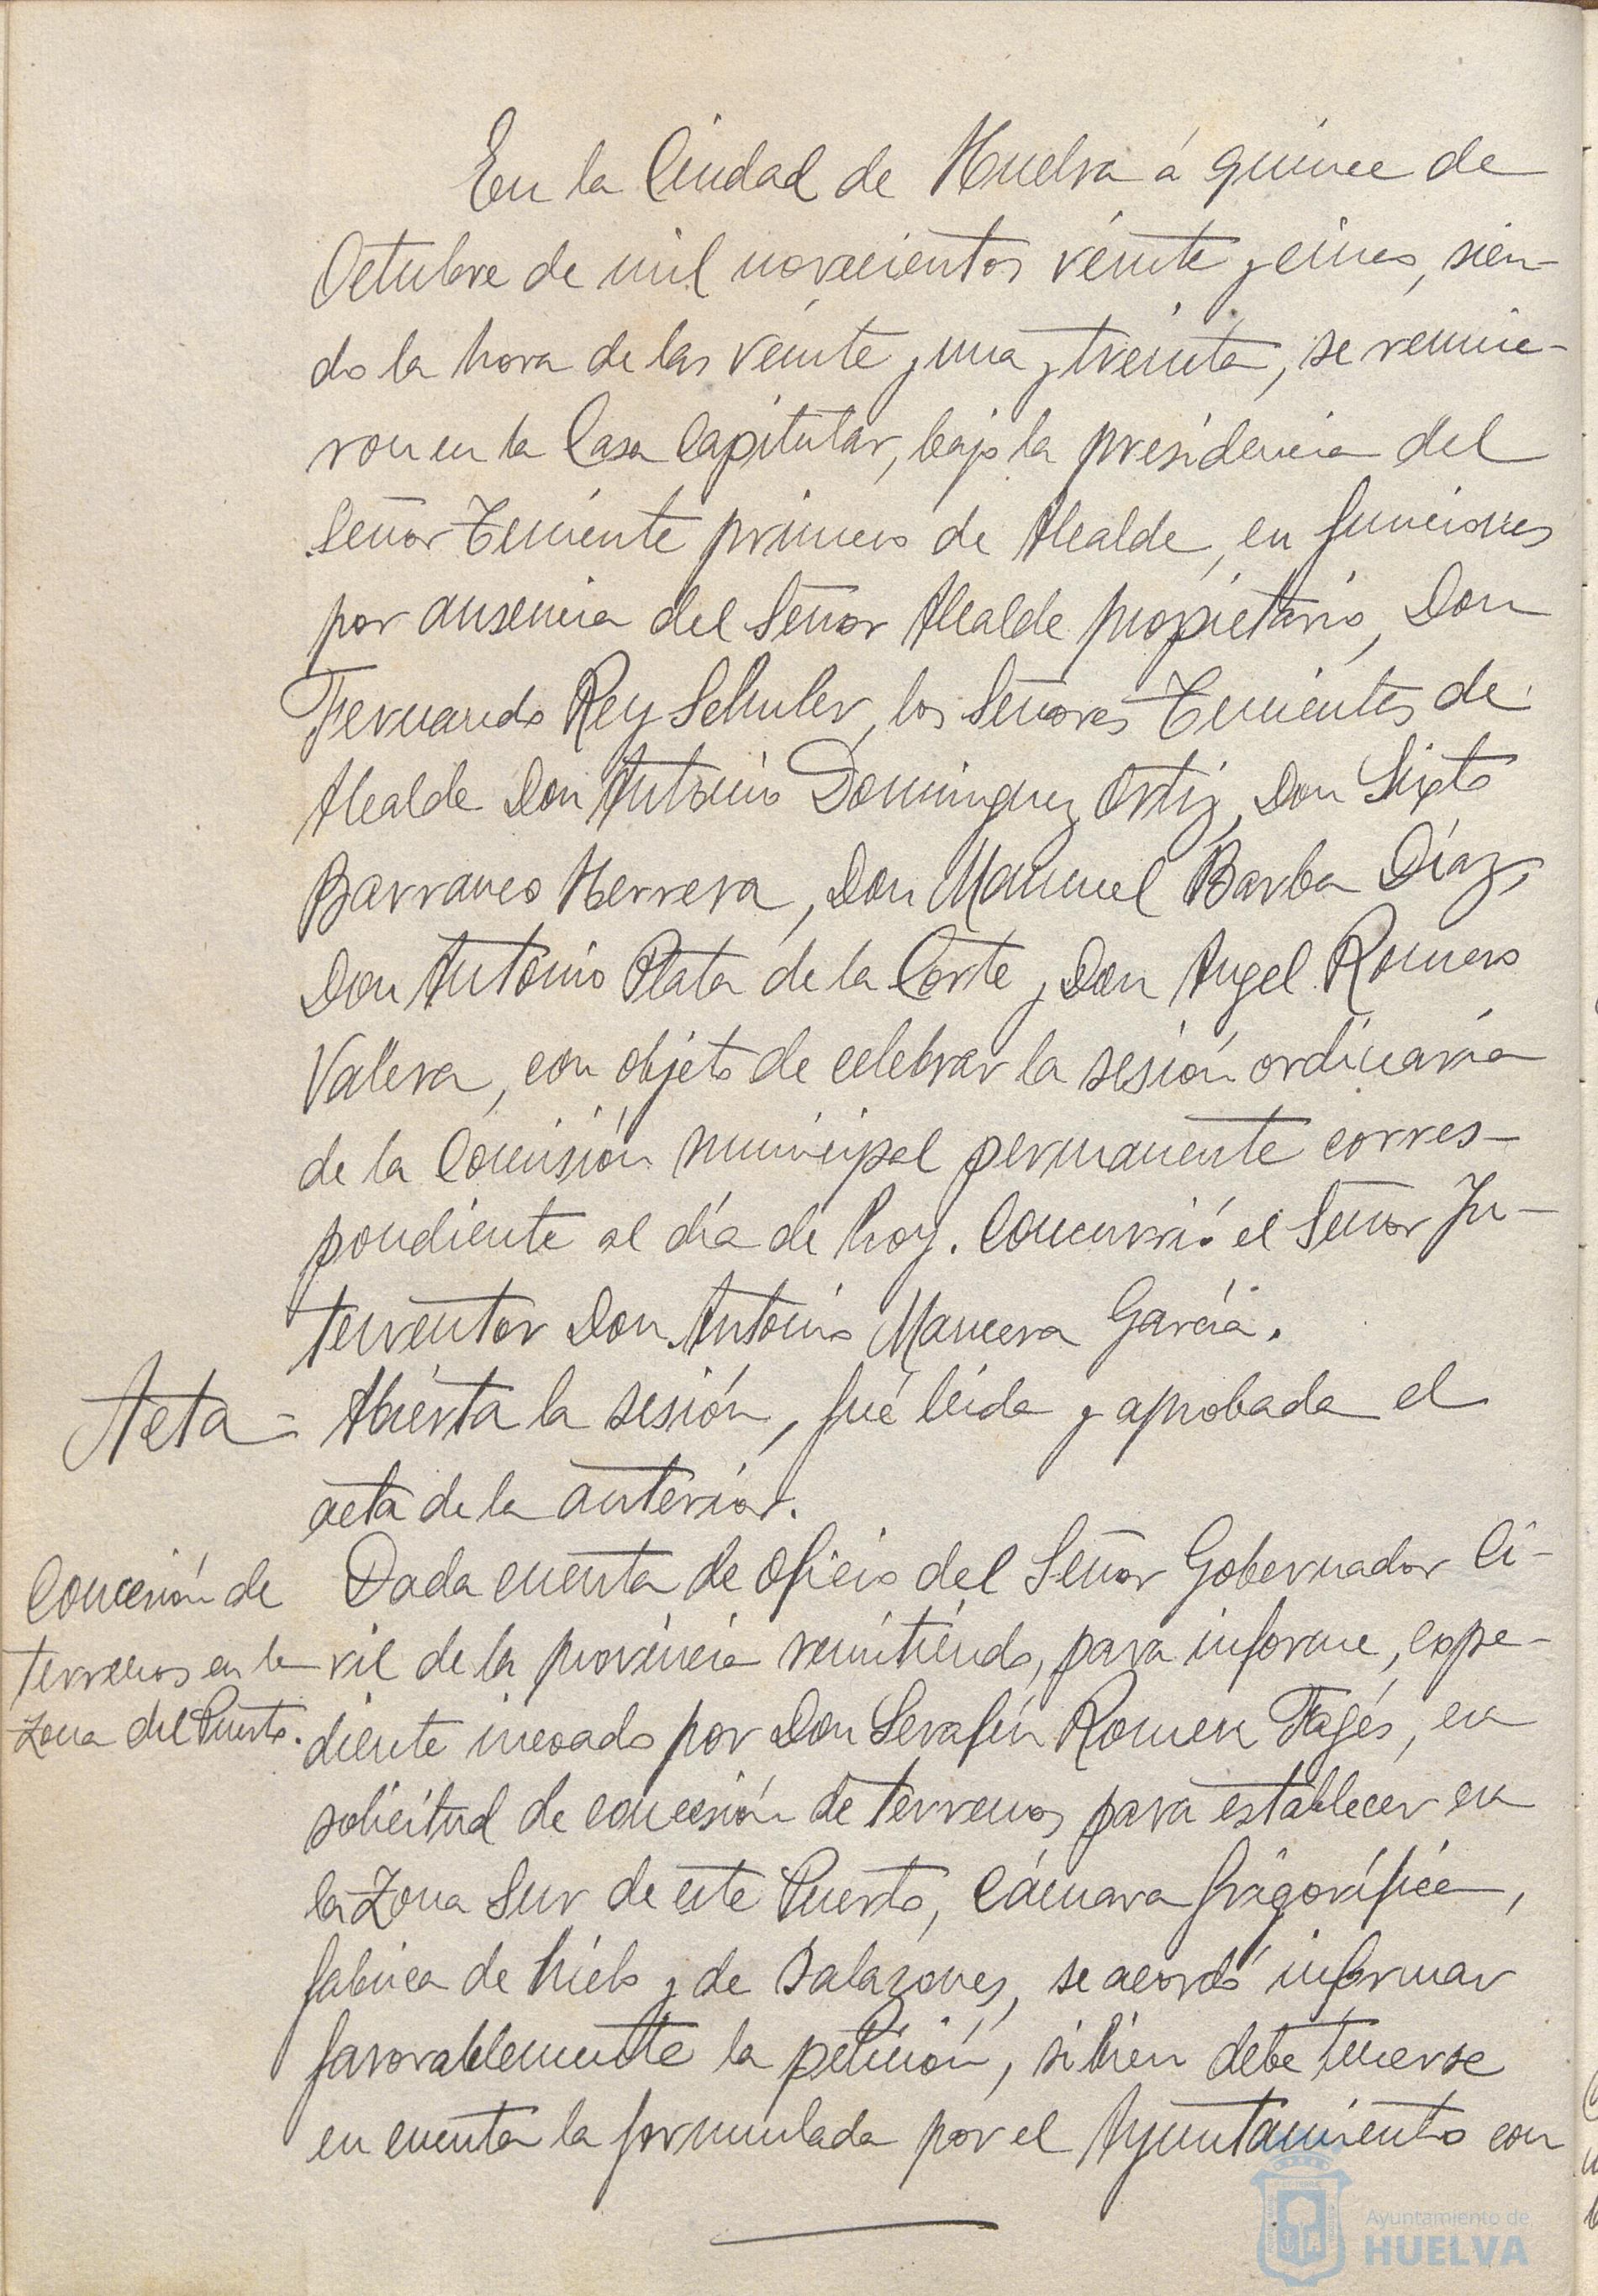 En la Ciudad de Huelva á quince de
Octubre de mil novecientos veinte y cinco, sien-
do la hora de las veinte y una y treinta, se reunie-
ron en la Casa Capitular, bajo la presidencia del
Señor Teniente primero de Alcalde, en funciones
por ausencia del Señor Alcalde propietario, Don
Fernando Rey Schuler, los Señores Tenientes de
Alcalde Don Antonio Dominguez Ortiz, Don Sixto
Barranco Herrera, Don Manuel Barba Díaz,
Don Antonio Plata de la Corte y Don Angel Romero
Valera, con objeto de celebrar la sesión ordinaria
de la Comisión municipal permanente corres-
pondiente al día de hoy. Concurrió el Señor In-
terventor Don Antonio Mancera García.
Acta = Abierta la sesión, fué leida y aprobada el
acta de la anterior.
Concesión de
terrenos en la
zona del Puerto.
Dada cuenta de oficio del Señor Gobernador Ci-
vil de la provincia remitiendo, para informe, expe-
diente incoado por Don Serafín Romeu Fagés, en
solicitud de concesión de terrenos para establecer en
la Zona Sur de este Puerto, Cámara frigorífica,
fabrica de hielo y de salazones, se acordó informar
favorablemente la petición, si bien debe tenerse
en cuenta la formulada por el Ayuntamiento con
Ayuntamiento de
HUELVA